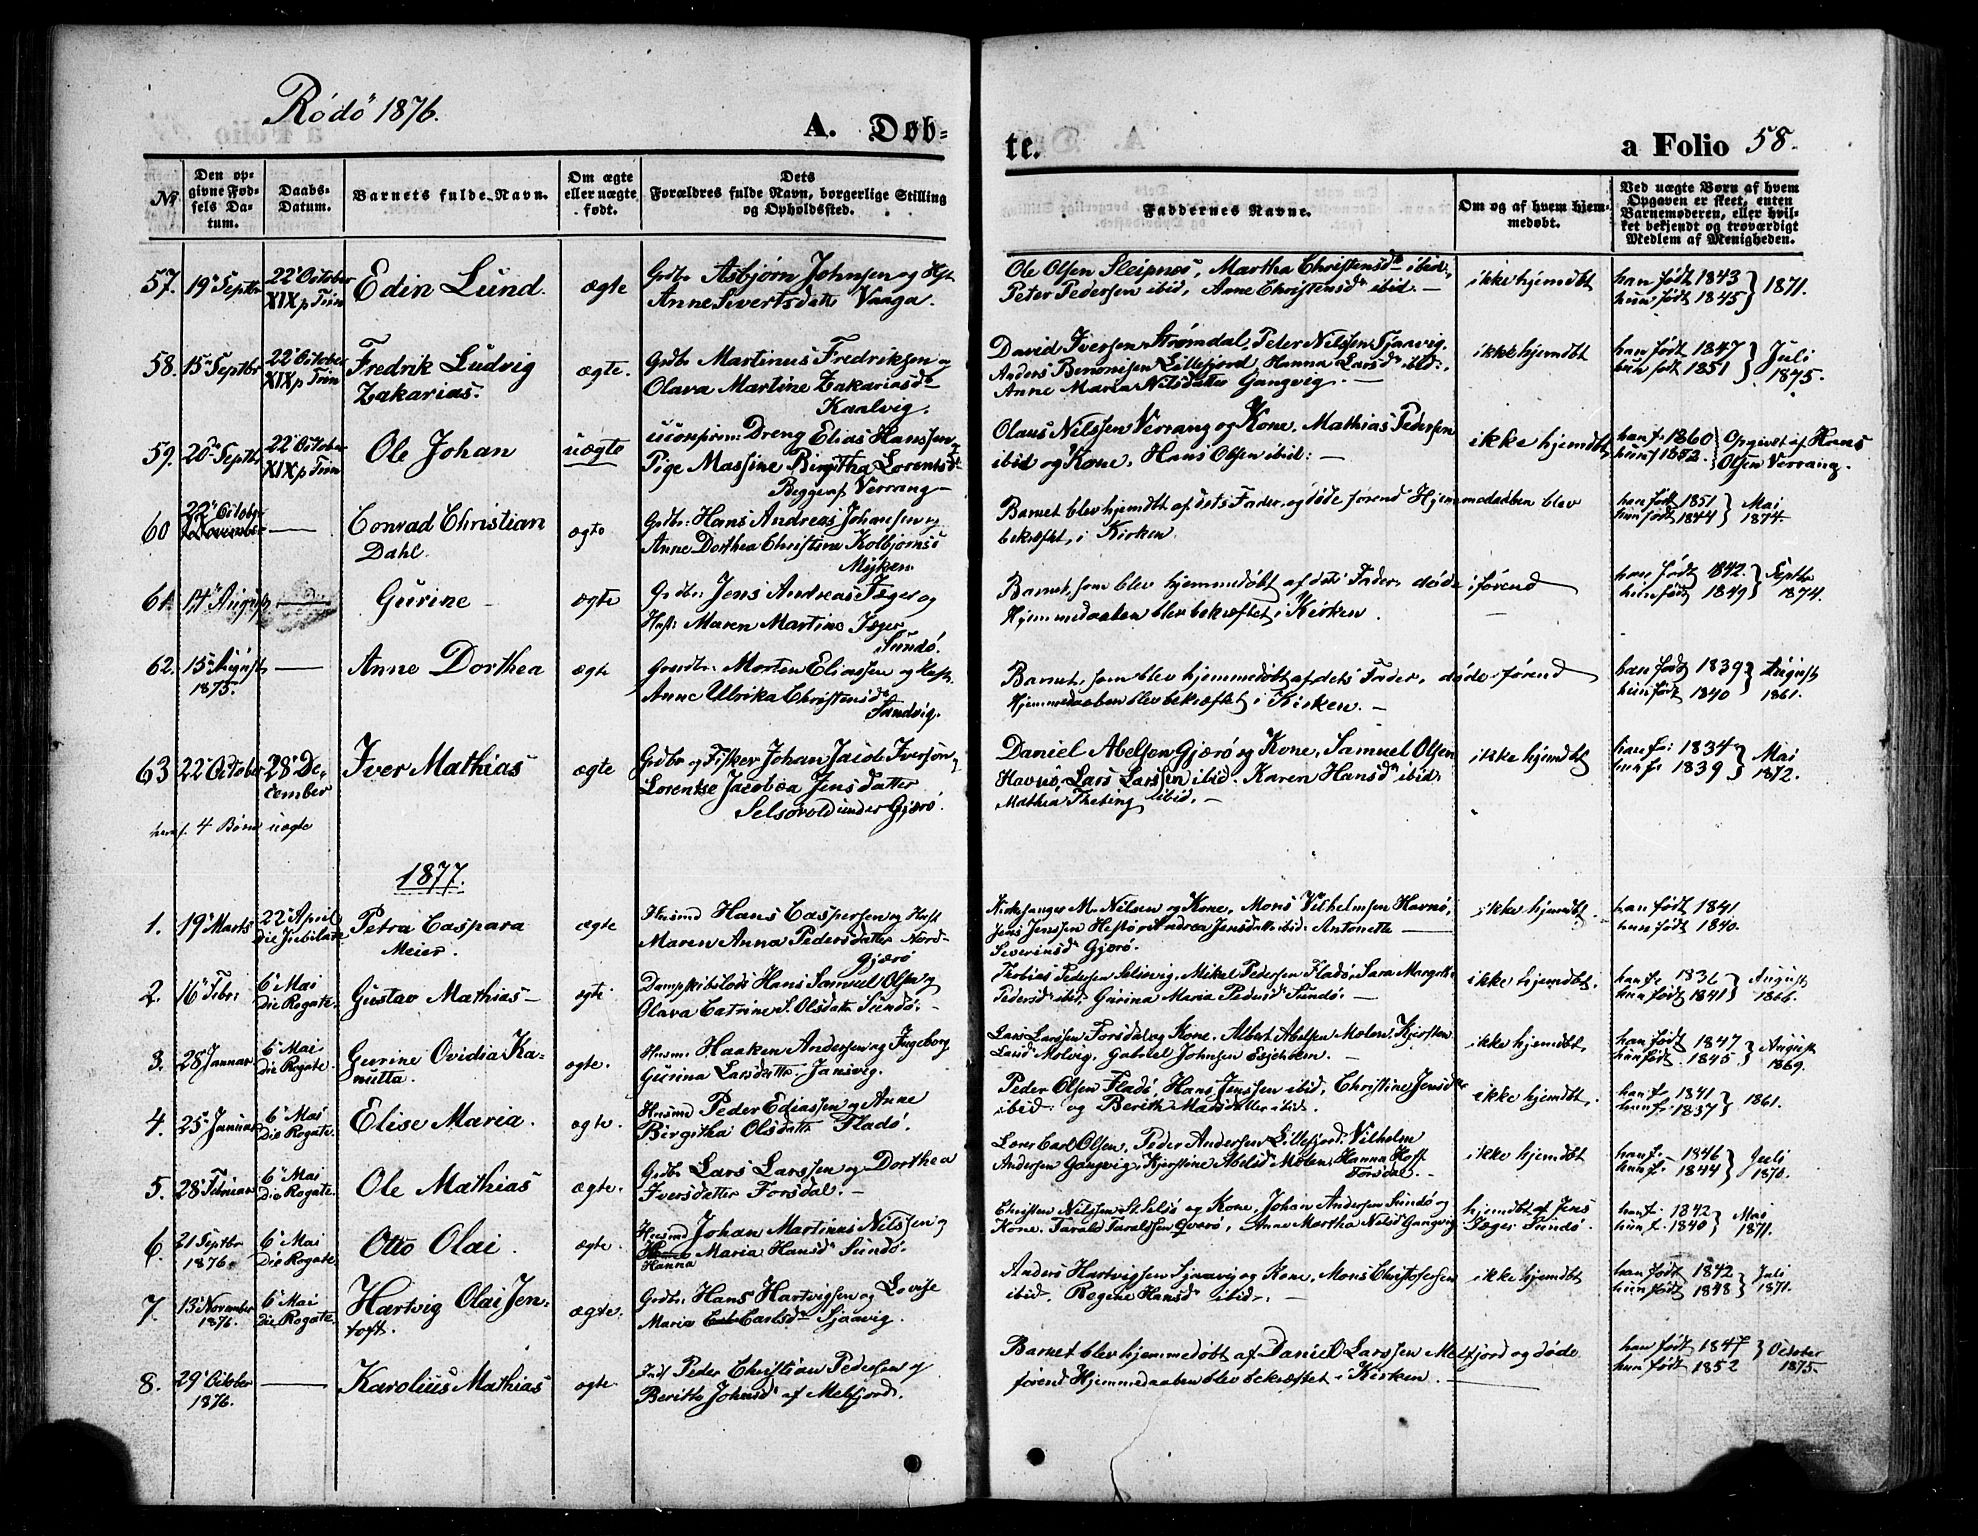 Rödö 1876.
A. Døb-
te.
a Folio 58.
No
Den op-
givne Fød-
sels Da-
tum.
Daabs-
Datum.
Barnets fulde Navn.
Om ægte
eller uægte
født.
Dets
Forældres fulde Navn, borgerlige Stilling
og Opholdssted.
Faddernes Navne.
Om og af hvem hjem-
medøbt.
Ved uægte Børn af hvem
Opgaven er skeet, enten
Barnemoderen, eller hvil-
ket bekjendt og troværdigt
Medlem af Menigheden.
57. 19 Septbr 22 October
XIX p Trin
Edin Lund. ægte
Grdbr Asbjørn Johnsen og Hst
Anne Sivertsdatt Vaaga.
Ole Olsen Sleipnes, Martha Christensdr ibid.,
Peter Pedersen ibid, Anne Christensdr ibid. —
ikke hjemdbt
han født 1843
hun født 1845 } 1871.
58. 15 Septbr 22 October
XIX p Trin
Fredrik Ludvig
Zakarias. ægte.
Grdbr Martinus Fredriksen og
Olava Martine Zakariasdr
Kaalvig.
David Iversen Strømdal, Peter Nilssen Sjaavig,
Anders Benonisen Lillefjord, Hanna Larsdr ibid.,
Anne Maria Nilsdatter Gangvig. —
ikke hjemdbt
han født 1847
hun født 1851 } Juli
1875.
59. 20de Septbr 22 October
XIX p Trin
Ole Johan uægte
uconfirm: Dreng Elias Hanssen og
Pige Massine Birgitha Lorentsdr
Begge af Verrang —
Olaus Nilssen Verrang og Kone, Mathias Pedersen
ibid og Kone, Hans Olsen ibid: —
ikke hjemdbt
han f. 1860
hun f 1852. } Opgivet af Hans
Olsen Verrang.
60 22 Octobr
—
Conrad Christian
Dahl. ægte
Grdbr: Hans Andreas Johansen og
Anne Dorthea Christine Kolbjørns
Myken
Barnet blev hjemdbt af dets Fader, og døde førend Hjemmedaaben blev
bekræftet, i Kirken.
han født 1851
hun født 1844 } Mai
1874
61. 14 August —
Gurine — ægte
Grdbr: Jens Andreas Jæger og
Hust: Maren Martine Jæger
Sundø.
Barnet, som blev hjemmedøbt af dets Fader døde førend
Hjemmedaaben blev bekræftet i Kirken.
han født 1842.
hun født 1849 } Septbr
1874.
62. 15 August
1875. —
Anne Dorthea ægte
Grdbr: Morten Eliassen og Hst.
Anne Ulrika Christensdr
Sandvig.
Barnet, som blev hjemmedøbt af dets Fader, døde førend
Hjemmedaaben blev bekræftet i Kirken. —
han født 1839
hun født 1840 } August
1861.
63 22 October 28 De-
cember
Iver Mathias ægte
Grdbr og Fisker Johan Jacob Iversen og
Lorentse Jacobæa Jensdatter
Selsøvold under Gjærø.
Daniel Abelsen Gjærø og Kone, Samuel Olsen
Havnø, Lars Larssen ibid. Karen Hansdr ibid.
Mathea Theting ibid. —
ikke hjemdbt
han f: 1834
hun f: 1839 } Mai
1872.
4 Børn uægte
1877.
1. 19 Marts 22 April
die Jubilate
Petra Caspara
Meier. ægte
Husmd Hans Caspersen og Hust
Maren Anna Pedersdatter Nord-
Gjærø
Kirkesanger M. Nilsen og Kone, Mons Vilhelmsen Havnø,
Jens Jenssen Hestør Andrea Jensdatt ibid. Antonette —
Severinsdr Gjærø.
ikke hjemdbt.
han født 1841
hun født 1840.
2. 16 Febr: 6 Mai
Die Rogate.
Gustav Mathias — ægte
Dampskibslods Hans Samuel Olsen og
Olava Catrine S. Olsdatr Sundø. —
Thobias Pedersen Selsvig, Mikel Pedersen Fladø, Sara Margrethe
Pedersdr ibid. Gurina Maria Pedersdr Sundø. —
ikke hjemdbt.
han f. 1836
hun født 1841 } August
1866.
3. 28 Januar 6 Mai
Die Rogate.
Gurine Ovidia Ka-
nutta. ægte.
Husm: Haaken Andersen og Ingeborg
Gurina Larsdatter Jansvig.
Lars Larssen Forsdal og Kone. Albert Abelsen Molen, Kjersten
Lund Molvig, Gabriel Johnsen Esjeholmen. —
ikke hjemdbt,
han født 1847
hun født 1845 } August
1869.
4. 25 Januar 6 Mai
Die Rogate.
Elise Maria. ægte.
Husmd Peder Ediassen og Anne
Birgitha Olsdattr Fladø.
Peder Olsen Fladø Hans Jenssen ibid, Christine Jensdr
ibid. og Berith Matsdatter ibid.
ikke hjemdbt,
han f. 1841
hun f. 1837 } 1861.
5. 28 Februar 6 Mai
Die Rogate.
Ole Mathias ægte.
Grdbr Lars Larssen og Dorthea
Iversdatter Forsdal. —
Lærer Carl Olsen, Peder Andersen Lillefjord. Vilhelm
Andersen Gangvig, Kjerstine Abelsd Molen, Hanna Hoff
Forsdal. —
ikke hjemdbt
han f. 1846
hun f. 1844 } Juli
1870.
6. 21 Septbr
1876. 6 Mai
Die Rogate.
Otto Olai. ægte.
Husmd Johan Martinus Nilssen og
Hanna Maria Hansdr Sundø.
Christen Nilssen St. Selsø og Kone, Johan Andersen Sundø og
Kone. Tarald Taraldsen Qvarø, Anne Martha Nilsdr Gangvig
hjemdbt af Jens
Jæger Sundø.
han f. 1842
hun f. 1840 } Mai
1871.
7. 13 November
1876. 6 Mai
Die Rogate.
Hartvig Olai Jen-
toft. ægte.
Grdbr: Hans Hartvigsen og Lovise
Maria Carlsdr Sjaavig.
Anders Hartvigsen Sjaavig og Kone, Mons Christofersen
ibid. Regine Hansdr ibid. —
ikke hjemdbt
han født 1842
hun født 1848 } Juli
1871.
8. 29 October
1876. —
Karolius Mathias ægte
Inds Peder Christian Pedersen og
Berithe Johnsdr af Melfjord.
Barnet blev hjemmedøbt af Daniel Larssen Melfjord og døde
førend Hjemmedaaben blev bekræftet i Kirken.
han født 1847
hun født 1852 } October
1875.